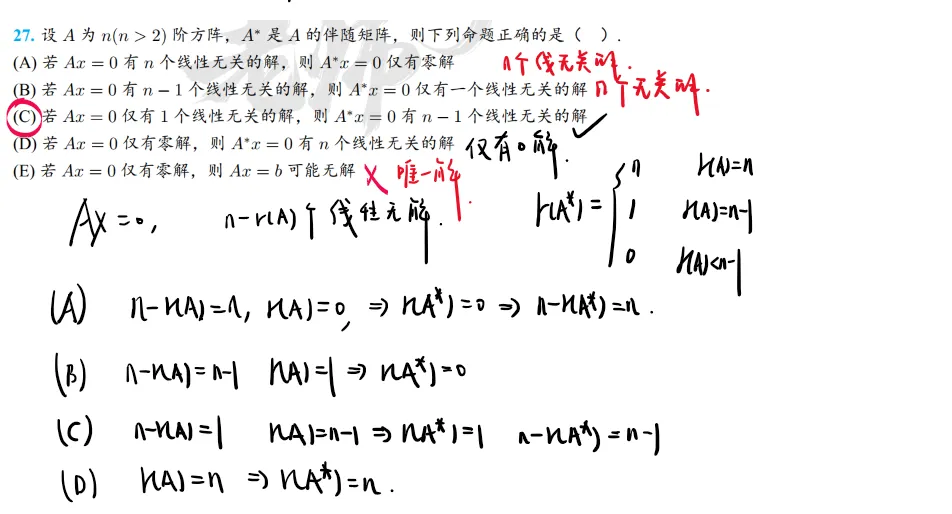 27. 设 A 为 n(n > 2) 阶方阵，A* 是 A 的伴随矩阵，则下列命题正确的是（ ）.
(A) 若 Ax = 0 有 n 个线性无关的解，则 A*x = 0 仅有零解 n个线无关解.
(B) 若 Ax = 0 有 n − 1 个线性无关的解，则 A*x = 0 仅有一个线性无关的解 n个无关解.
(C) 若 Ax = 0 仅有 1 个线性无关的解，则 A*x = 0 有 n − 1 个线性无关的解 ✓
(D) 若 Ax = 0 仅有零解，则 A*x = 0 有 n 个线性无关的解 仅有0解.
(E) 若 Ax = 0 仅有零解，则 Ax = b 可能无解 × 唯一解.
Ax=0, n-r(A)个线性无解.
r(A*) = { n r(A)=n
1 r(A)=n-1
0 r(A)<n-1
(A) n-r(A)=n, r(A)=0, ⇒ r(A*)=0 ⇒ n-r(A*)=n.
(B) n-r(A)=n-1 r(A)=1 ⇒ r(A*)=0
(C) n-r(A)=1 r(A)=n-1 ⇒ r(A*)=1 n-r(A*)=n-1
(D) r(A)=n ⇒ r(A*)=n.